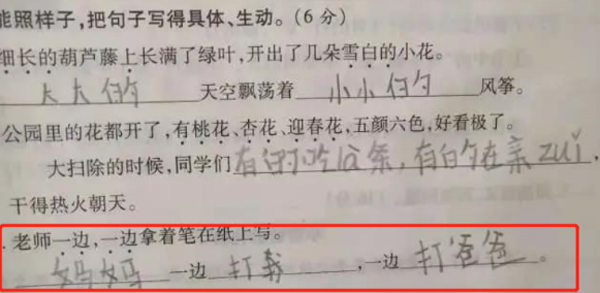 能照样子,把句子写得具体、生动。(6分)
细长的葫芦藤上长满了绿叶,开出了几朵雪白的小花。
大大的 天空飘荡着 小小的 风筝。
公园里的花都开了,有桃花、杏花、迎春花,五颜六色,好看极了。
大扫除的时候,同学们有的吃谷条,有的在亲zui,
干得热火朝天。
. 老师一边,一边拿着笔在纸上写。
妈妈 一边 打我 ,一边 打爸爸 。